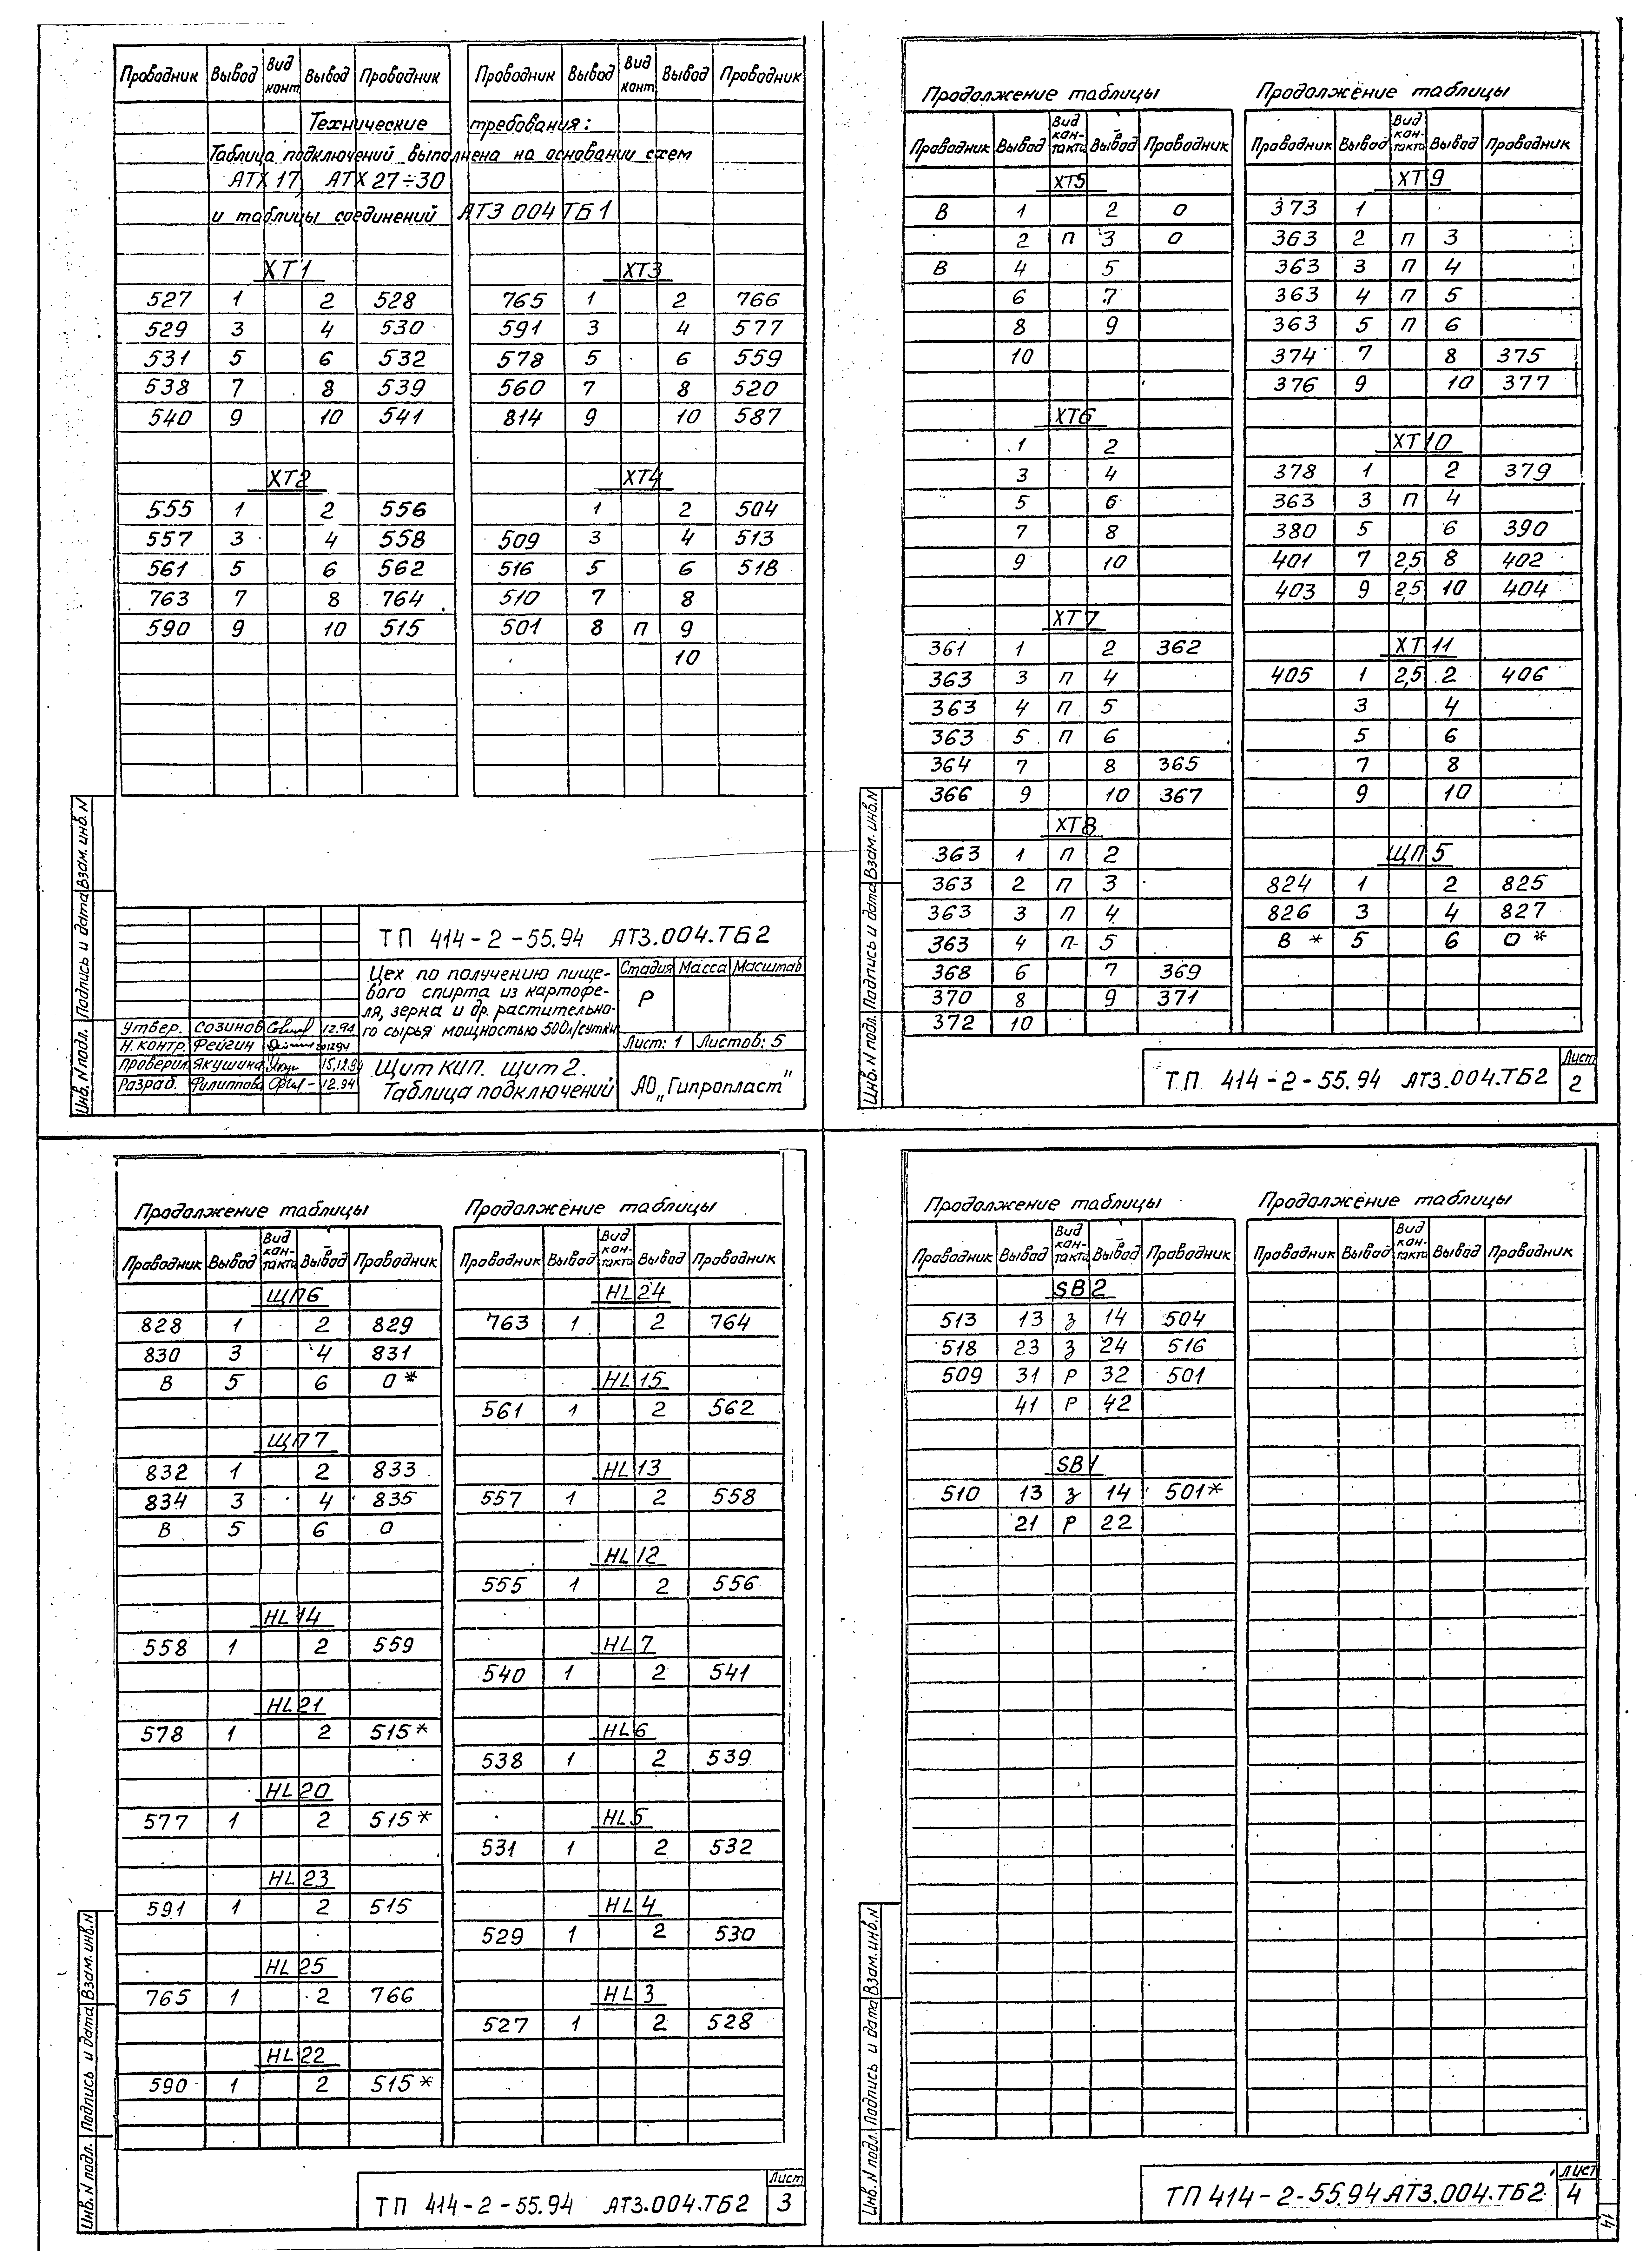 Проводник Вывод Вид конт Вывод Проводник
Технические требования:
Таблица подключений выполнена на основании схем
АТХ 17, АТХ 27÷30
и таблицы соединений АТЗ 004 ТБ1
ХТ1
527 1 2 528
529 3 4 530
531 5 6 532
538 7 8 539
540 9 10 541
ХТ2
555 1 2 556
557 3 4 558
561 5 6 562
763 7 8 764
590 9 10 515
Проводник Вывод Вид конт Вывод Проводник
ХТ3
765 1 2 766
591 3 4 577
578 5 6 559
560 7 8 520
814 9 10 587
ХТ4
1 2 504
509 3 4 513
516 5 6 518
510 7 8
501 8 П 9
10
ТП 414-2-55.94 АТЗ.004.ТБ2
Цех по получению пище-
вого спирта из картофе-
ля, зерна и др. растительно-
го сырья мощностью 500л/сутки
Стадия Масса Масштаб
Р
Лист: 1 Листов: 5
Утвер. Созинов 12.94
Н.контр. Фейгин
Проверил Якушина 15.12.94
Разраб. Филиппова 12.94
Щит КИП. Щит 2.
Таблица подключений
АО „Гипропласт"
Инв. N подл. Подпись и дата Взам. инв. N
Продолжение таблицы
Проводник Вывод Вид кон-такта Вывод Проводник
ХТ5
В 1 2 0
2 П 3 0
В 4 5
6 7
8 9
10
ХТ6
1 2
3 4
5 6
7 8
9 10
ХТ7
361 1 2 362
363 3 П 4
363 4 П 5
363 5 П 6
364 7 8 365
366 9 10 367
ХТ8
363 1 П 2
363 2 П 3
363 3 П 4
363 4 П 5
368 6 7 369
370 8 9 371
372 10
Продолжение таблицы
Проводник Вывод Вид кон-такта Вывод Проводник
ХТ9
373 1
363 2 П 3
363 3 П 4
363 4 П 5
363 5 П 6
374 7 8 375
376 9 10 377
ХТ10
378 1 2 379
363 3 П 4
380 5 6 390
401 7 2,5 8 402
403 9 2,5 10 404
ХТ11
405 1 2,5 2 406
3 4
5 6
7 8
9 10
ЩП5
824 1 2 825
826 3 4 827
В * 5 6 0 *
Инв. N подл. Подпись и дата Взам. инв. N
ТП 414-2-55.94 АТЗ.004.ТБ2
Лист
2
Продолжение таблицы
Проводник Вывод Вид кон-такта Вывод Проводник
ЩП6
828 1 2 829
830 3 4 831
В 5 6 0 *
ЩП7
832 1 2 833
834 3 4 835
В 5 6 0
HL14
558 1 2 559
HL21
578 1 2 515 *
HL20
577 1 2 515 *
HL23
591 1 2 515
HL25
765 1 2 766
HL22
590 1 2 515 *
Продолжение таблицы
Проводник Вывод Вид кон-такта Вывод Проводник
HL24
763 1 2 764
HL15
561 1 2 562
HL13
557 1 2 558
HL12
555 1 2 556
HL7
540 1 2 541
HL6
538 1 2 539
HL5
531 1 2 532
HL4
529 1 2 530
HL3
527 1 2 528
Инв. N подл. Подпись и дата Взам. инв. N
ТП 414-2-55.94 АТЗ.004.ТБ2
Лист
3
Продолжение таблицы
Проводник Вывод Вид кон-такта Вывод Проводник
SB2
513 13 З 14 504
518 23 З 24 516
509 31 Р 32 501
41 Р 42
SB1
510 13 З 14 501*
21 Р 22
Продолжение таблицы
Проводник Вывод Вид кон-такта Вывод Проводник
Инв. N подл. Подпись и дата Взам. инв. N
ТП 414-2-55.94 АТЗ.004.ТБ2
Лист
4
14